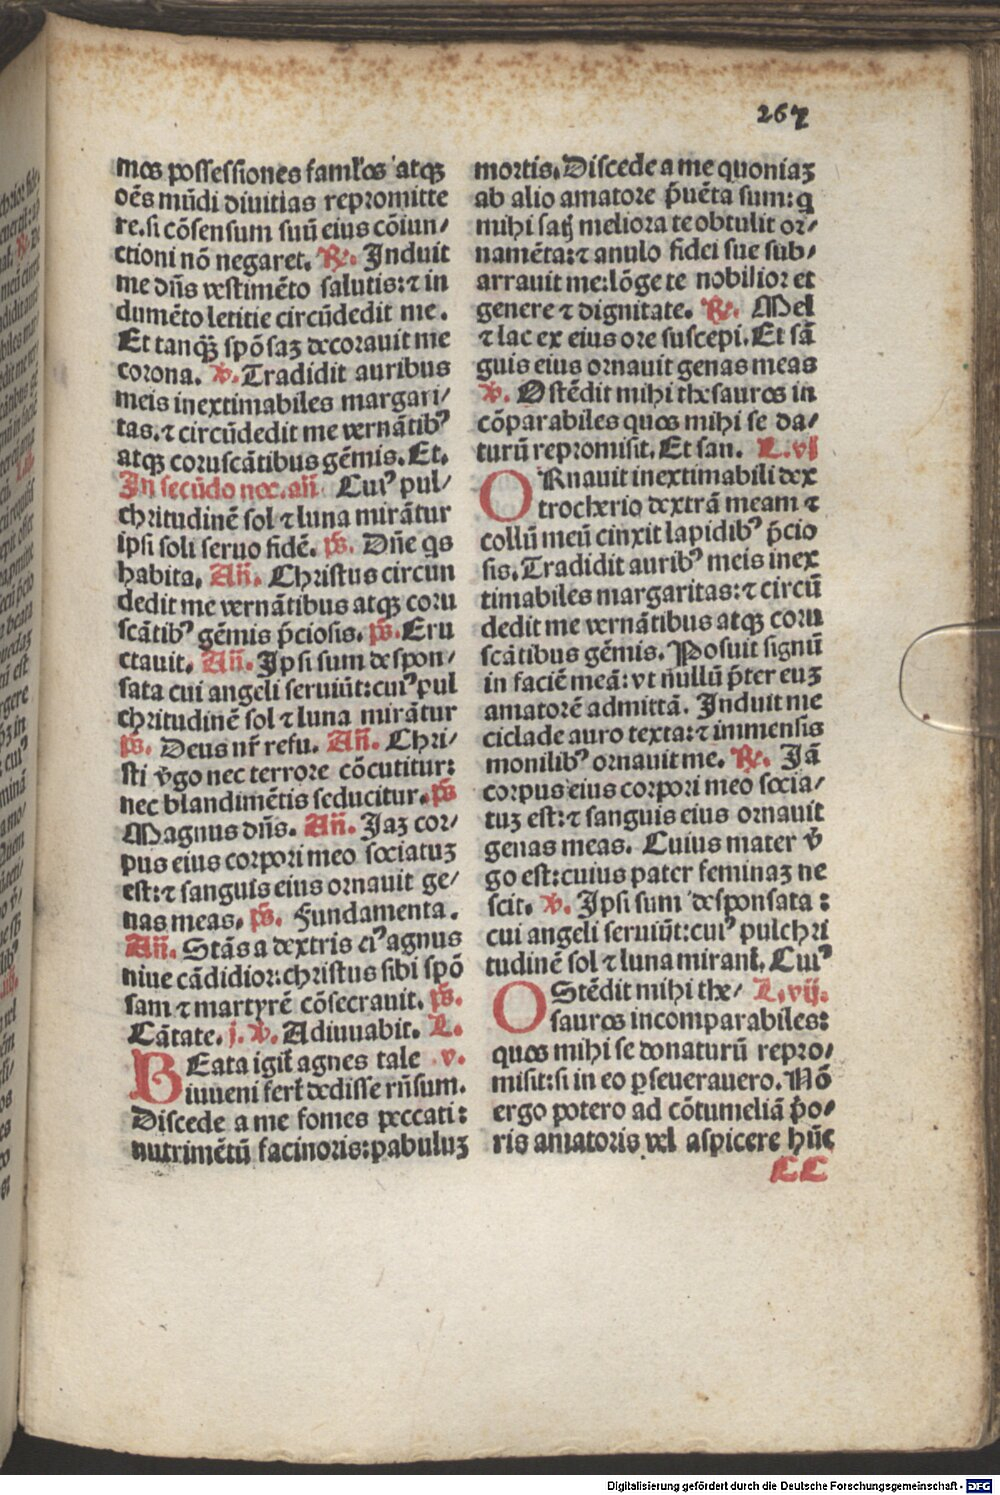 267
mos possessiones famlos atqȝ
oēs mūdi divitias repromitte
re. si cōsensum suū eius cōiun/
ctioni nō negaret. R. Induit
me dn̄s vestimēto salutis: ⁊ in
dumēto letitie circūdedit me.
Et tanqȝ spōsaȝ decorauit me
corona. V. Tradidit auribus
meis inextimabiles margari/
tas. ⁊ circūdedit me vernātibꝰ
atqȝ coruscātibus gēmis. Et.
In secūdo noc. an̄ Cuiꝰ pul/
chritudinē sol ⁊ luna mirātur
ipsi soli seruo fidē. ps̄. Dn̄e qs
habita. An̄. Christus circun
dedit me vernātibus atqȝ coru
scātibꝰ gēmis p̄ciosis. ps̄. Eru
ctauit. An̄. Ipsi sum despon/
sata cui angeli seruiūt: cuiꝰ pul
chritudinē sol ⁊ luna mirātur
ps̄. Deus nr̄ refu. An̄. Chri/
sti v̄go nec terrore cōcutitur:
nec blandimētis seducitur. ps̄
Magnus dn̄s. An̄. Jaȝ cor/
pus eius corpori meo sociatuȝ
est: ⁊ sanguis eius ornauit ge/
nas meas. ps̄. Fundamenta.
An̄. Stās a dextris eiꝰ agnus
niue cādidior: christus sibi spō
sam ⁊ martyrē cōsecrauit. ps̄.
Cātate. j. V. Adiuuabit. L.
BEata igit̄ agnes tale v.
iuueni fert̄ dedisse rn̄sum.
Discede a me fomes peccati:
nutrimētū facinoris: pabuluȝ
mortis. Discede a me quoniaȝ
ab alio amatore p̄uēta sum: q
mihi satꝭ meliora te obtulit or/
namēta: ⁊ anulo fidei sue sub/
arrauit me: lōge te nobilior et
genere ⁊ dignitate. R. Mel
⁊ lac ex eius ore suscepi. Et sā
guis eius ornauit genas meas
V. Ostēdit mihi thesauros in
cōparabiles quos mihi se da/
turū repromisit. Et san. L. vj
ORnauit inextimabili dex
trocherio dextrā meam ⁊
collū meū cinxit lapidibꝰ p̄cio
sis. Tradidit auribꝰ meis inex
timabiles margaritas: ⁊ circū
dedit me vernātibus atqȝ coru
scātibus gēmis. Posuit signū
in faciē meā: vt nullū p̄ter euȝ
amatorē admittā. Induit me
ciclade auro texta: ⁊ immensis
monilibꝰ ornauit me. R. Jā
corpus eius corpori meo socia/
tuȝ est: ⁊ sanguis eius ornauit
genas meas. Cuius mater v̄
go est: cuius pater feminaȝ ne
scit. V. Ipsi sum desponsata:
cui angeli seruiūt: cuiꝰ pulchri
tudinē sol ⁊ luna mirant̄. Cuiꝰ
OStēdit mihi the/ L. vij.
sauros incomparabiles:
quos mihi se donaturū repro/
misit: si in eo ꝑseuerauero. Nō
ergo potero ad cōtumeliā p̄o/
ris amatoris vel aspicere hūc
CC
Digitalisierung gefördert durch die Deutsche Forschungsgemeinschaft - DFG